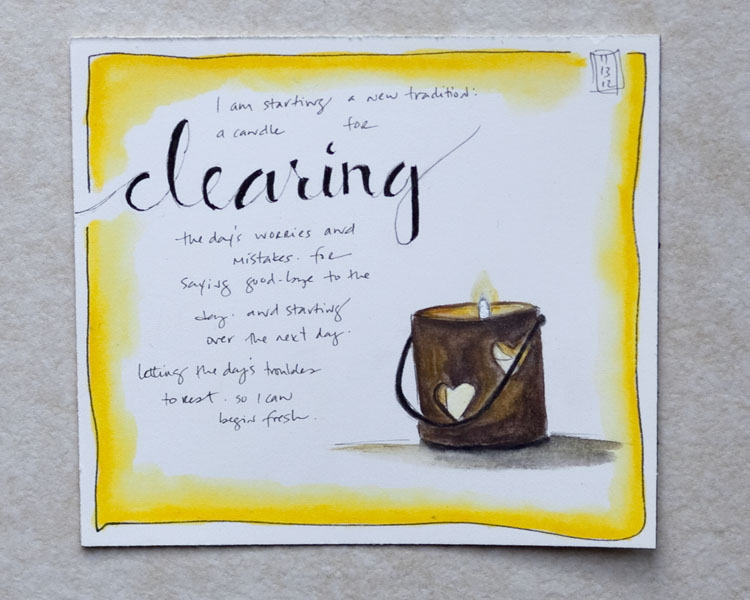 11
13
12
I am starting a new tradition:
a candle for
clearing
the day's worries and
mistakes. for
saying good-bye to the
day. and starting
over the next day.
letting the day's troubles
to rest. so I can
begin fresh.